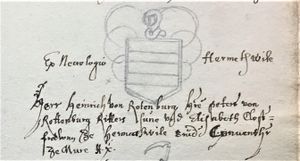 Ex Necrologio Hermeth wile
Herr Heinrich von Rotenburg herr peters von
Rottenburg Ritters sune und Elisabeth Clost
frowen ze Hermatwile Conventhr
ze Mure